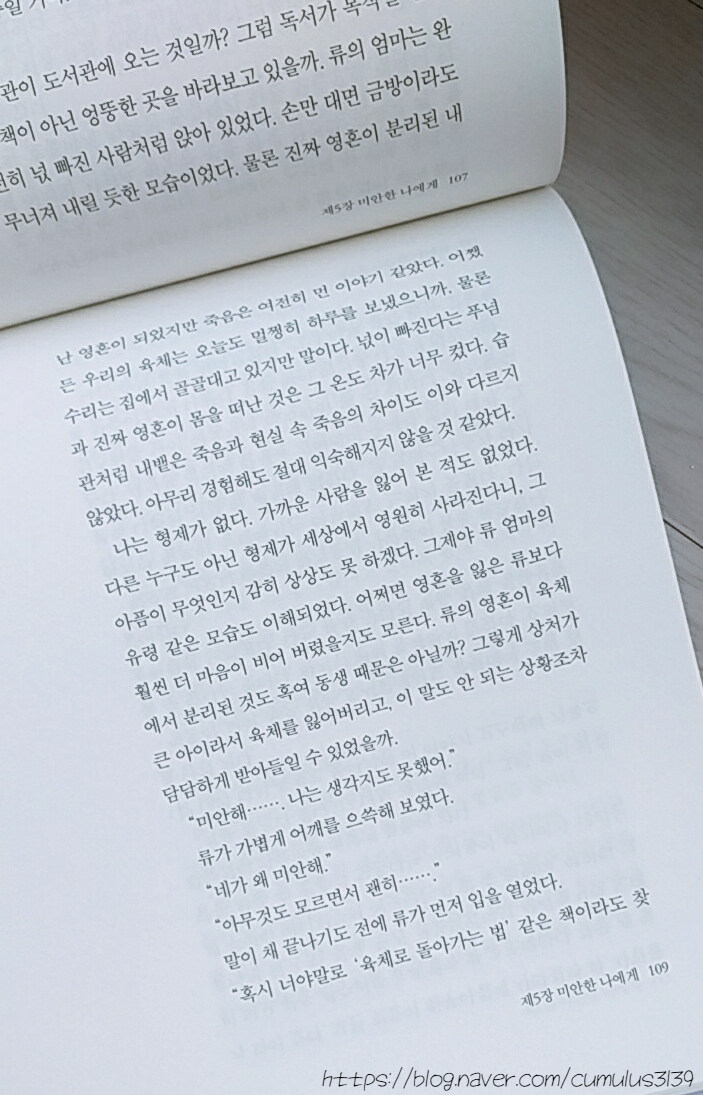 관이 도서관에 오는 것일까? 그럼 독서가
책이 아닌 엉뚱한 곳을 바라보고 있을까. 류의 엄마는 완
넋 빠진 사람처럼 앉아 있었다. 손만 대면 금방이라도
무너져 내릴 듯한 모습이었다. 물론 진짜 영혼이 분리된 내
제5장 미안한 나에게 107
난 영혼이 되었지만 죽음은 여전히 먼 이야기 같았다. 어쨌
든 우리의 육체는 오늘도 멀쩡히 하루를 보냈으니까. 물론
수리는 집에서 골골대고 있지만 말이다. 넋이 빠진다는 푸념
과 진짜 영혼이 몸을 떠난 것은 그 온도 차가 너무 컸다. 습
관처럼 내뱉은 죽음과 현실 속 죽음의 차이도 이와 다르지
않았다. 아무리 경험해도 절대 익숙해지지 않을 것 같았다.
나는 형제가 없다. 가까운 사람을 잃어 본 적도 없었다.
다른 누구도 아닌 형제가 세상에서 영원히 사라진다니, 그
아픔이 무엇인지 감히 상상도 못 하겠다. 그제야 류 엄마의
유령 같은 모습도 이해되었다. 어쩌면 영혼을 잃은 류보다
훨씬 더 마음이 비어 버렸을지도 모른다. 류의 영혼이 육체
에서 분리된 것도 혹여 동생 때문은 아닐까? 그렇게 상처가
큰 아이라서 육체를 잃어버리고, 이 말도 안 되는 상황조차
담담하게 받아들일 수 있었을까.
“미안해……. 나는 생각지도 못했어.”
류가 가볍게 어깨를 으쓱해 보였다.
“네가 왜 미안해.”
“아무것도 모르면서 괜히…….”
말이 채 끝나기도 전에 류가 먼저 입을 열었다.
“혹시 너야말로 ‘육체로 돌아가는 법’ 같은 책이라도 찾
제5장 미안한 나에게 109
https://blog.naver.com/cumulus3139